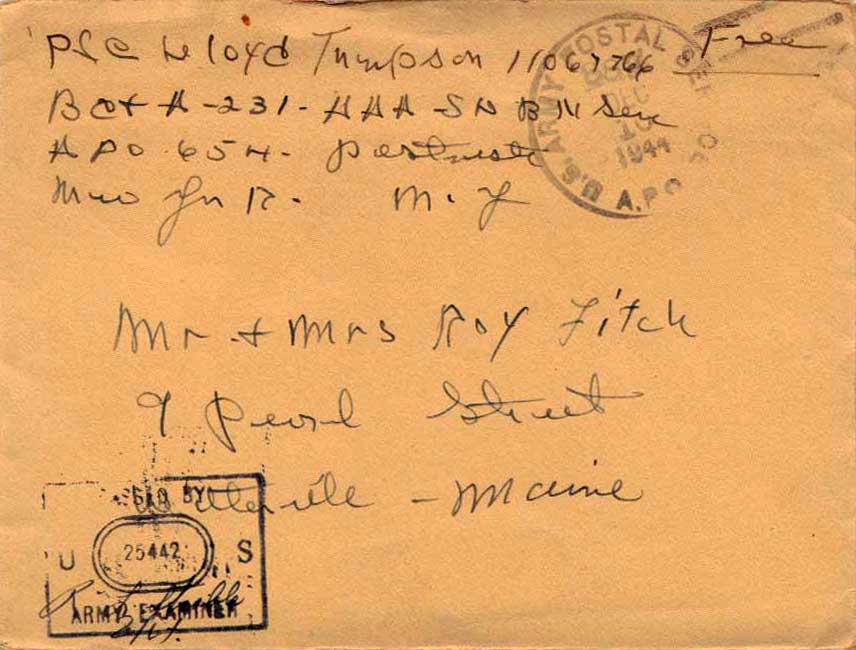 Pfc Lloyd Thompson 11067766 Free
Bat A-231-AAA-SN BN Sem
APO 654-
New York. N.Y
U.S. ARMY POSTAL SER
DEC
10
1944
A.P.O.
Mr. + Mrs Roy Fitch
9 Pearl Street
Waterville - Maine
BY
U 25442 S
ARMY EXAMINER